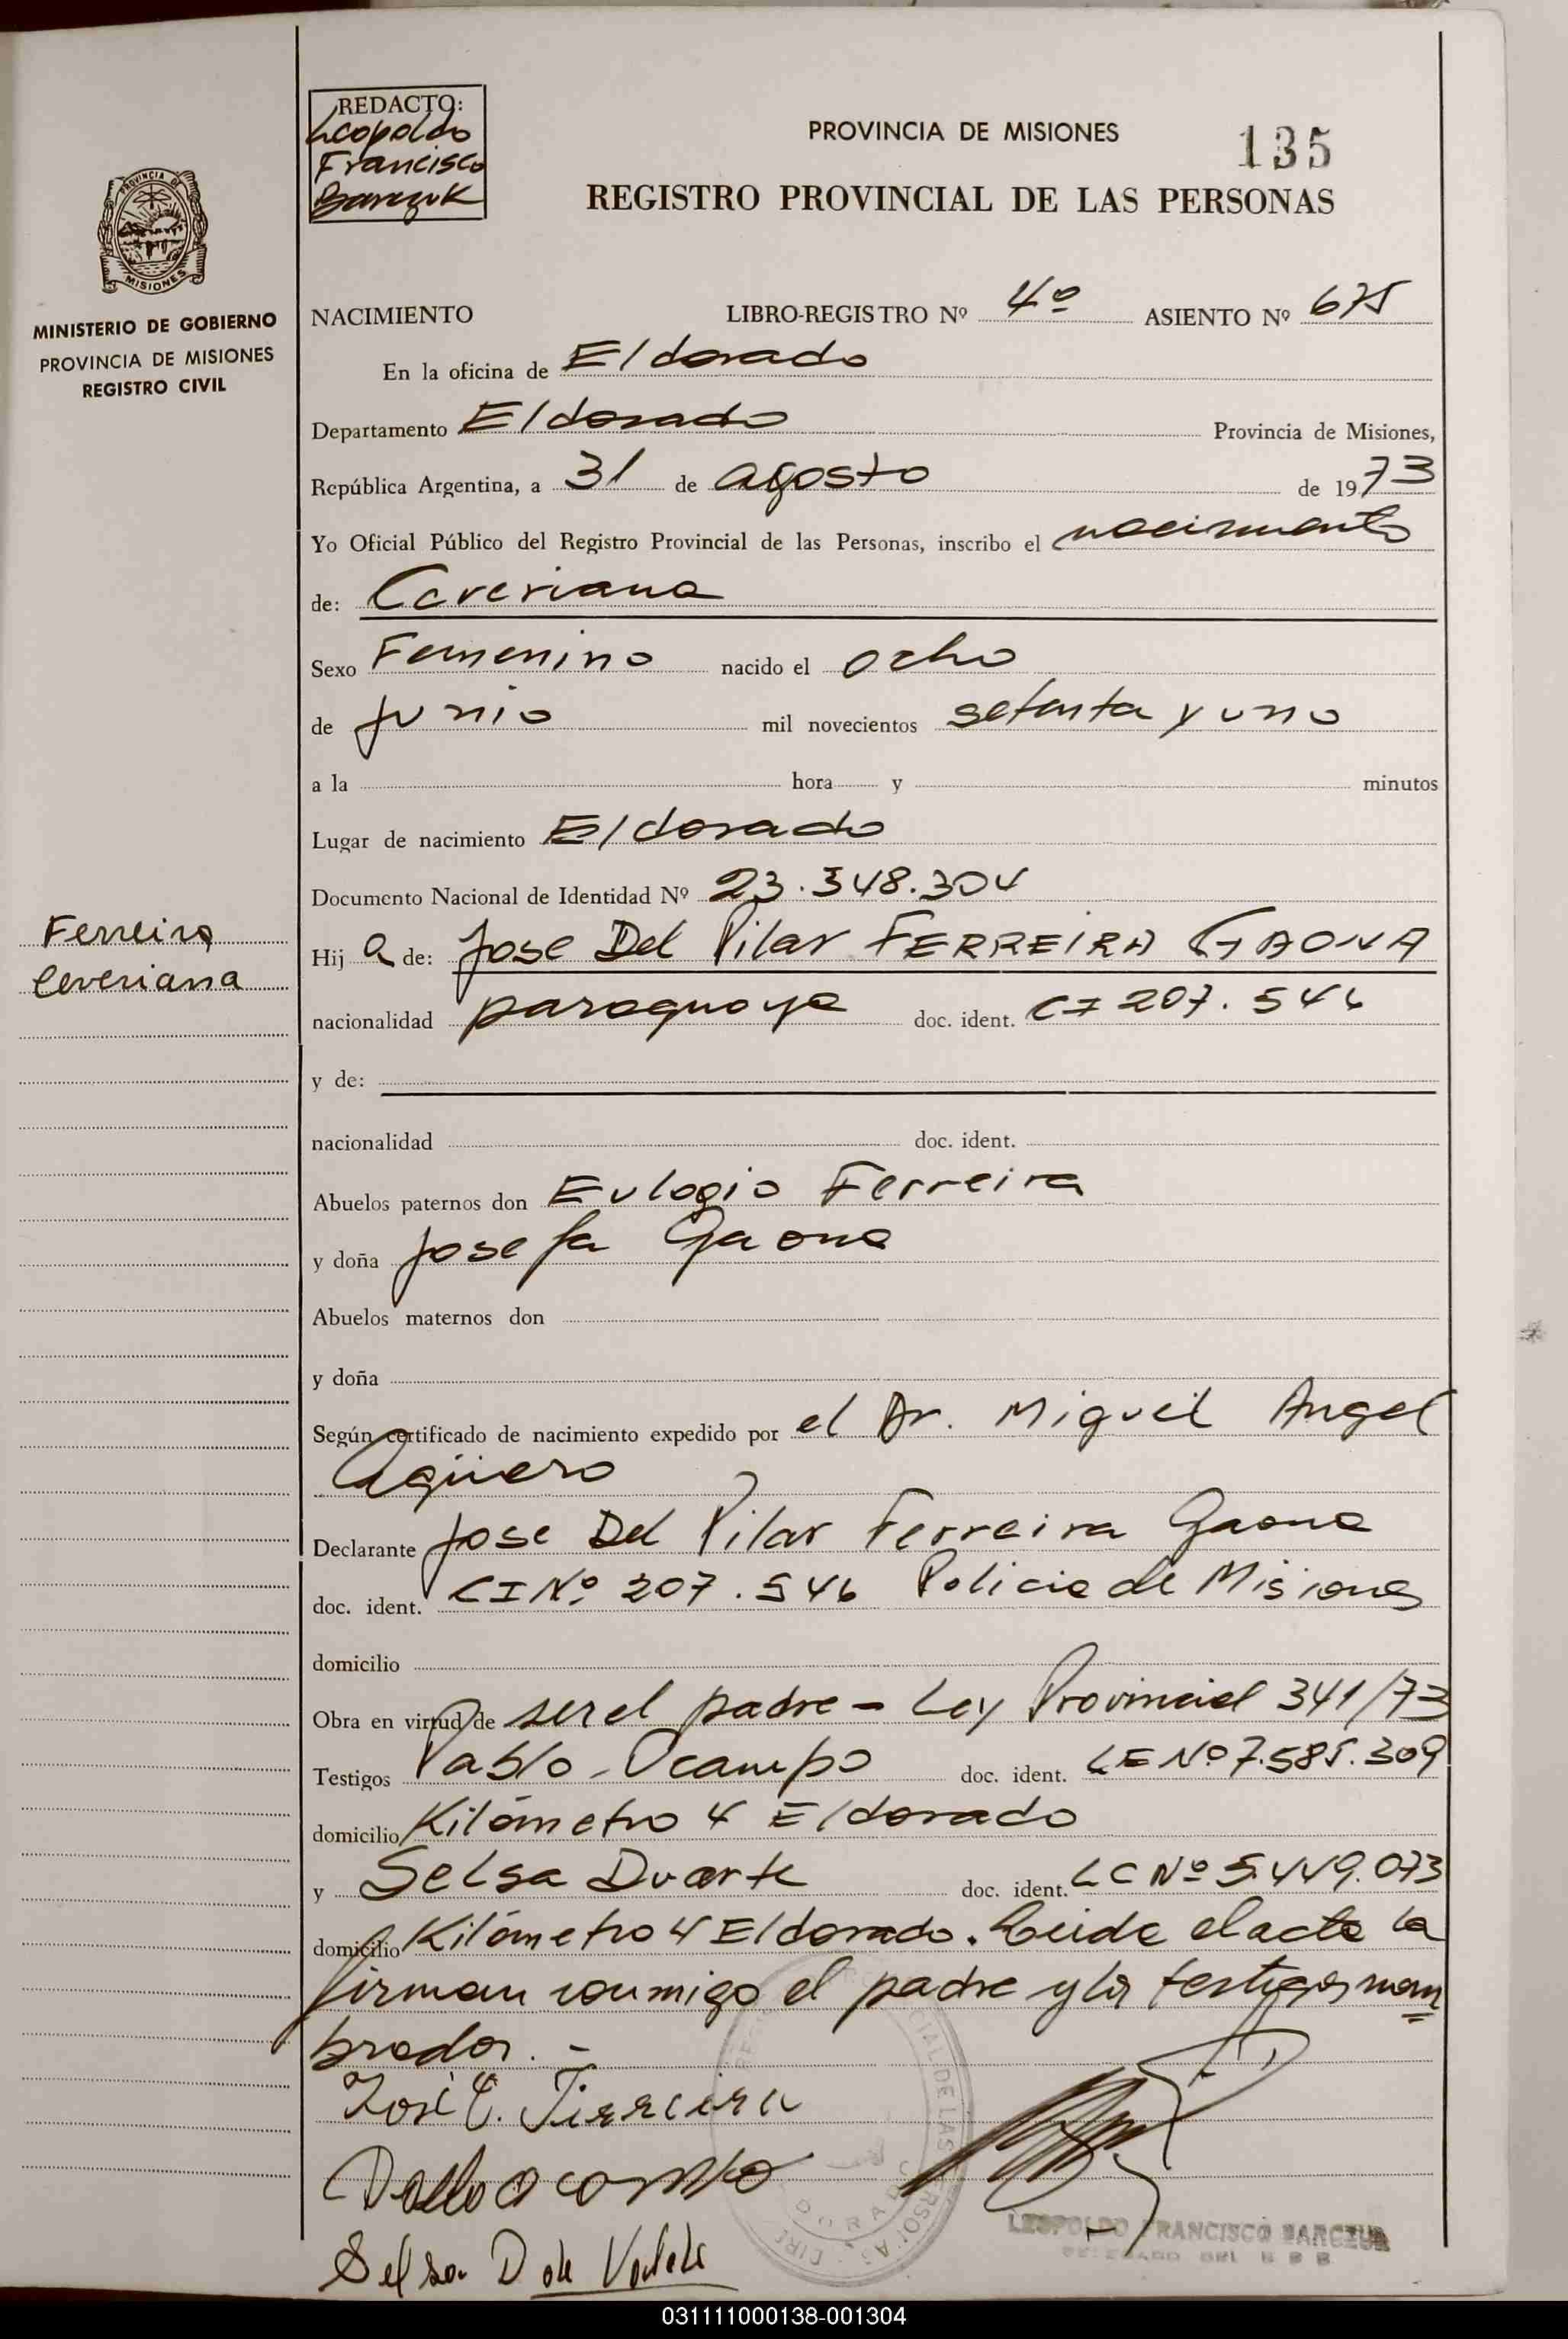 REDACTO:
Leopoldo
Francisco
Barczuk
PROVINCIA DE MISIONES
135
REGISTRO PROVINCIAL DE LAS PERSONAS
PROVINCIA DE
MISIONES
MINISTERIO DE GOBIERNO
PROVINCIA DE MISIONES
REGISTRO CIVIL
NACIMIENTO LIBRO-REGISTRO Nº 4º ASIENTO Nº 675
En la oficina de Eldorado
Departamento Eldorado Provincia de Misiones,
República Argentina, a 31 de agosto de 1973
Yo Oficial Público del Registro Provincial de las Personas, inscribo el nacimiento
de: Ceveriana
Sexo Femenino nacido el ocho
de junio mil novecientos setenta y uno
a la hora y minutos
Lugar de nacimiento Eldorado
Documento Nacional de Identidad Nº 23.348.304
Ferreira
Ceveriana
Hij a de: Jose Del Pilar FERREIRA GAONA
nacionalidad paraguaya doc. ident. CI 207.546
y de:
nacionalidad doc. ident.
Abuelos paternos don Eulogio Ferreira
y doña Josefa Gaona
Abuelos maternos don
y doña
Según certificado de nacimiento expedido por el Dr. Miguel Angel
Agüero
Declarante Jose Del Pilar Ferreira Gaona
doc. ident. CI Nº 207.546 Policia de Misiones
domicilio
Obra en virtud de ser el padre - Ley Provincial 341/73
Testigos Pablo Ocampo doc. ident. LE Nº 7.585.309
domicilio Kilómetro 4 Eldorado
y Selsa Duarte doc. ident. LC Nº 5.449.073
domicilio Kilómetro 4 Eldorado. Leida el acta la
firman conmigo el padre y los testigos nom
brados. -
José P. Ferreira
Pablo Ocampo
Selsa D de
LEOPOLDO FRANCISCO BARCZUK
031111000138-001304